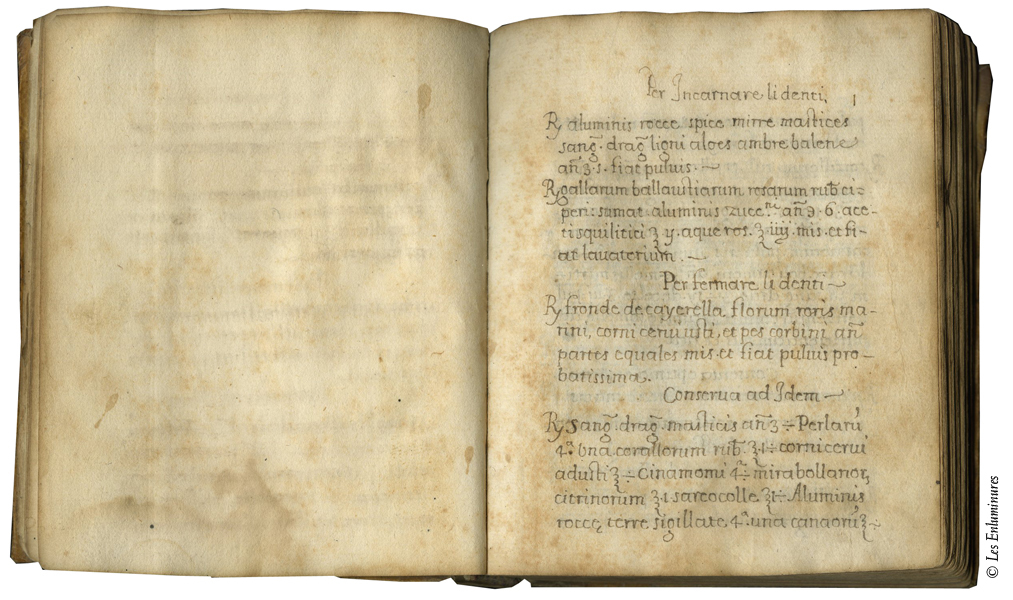 Per Incarnare li denti. 1
℞ aluminis rocce spice mirre mastices
sang̃. drag̃ ligni aloes ambre balene
añ ʒ. s. fiat puluis.
℞ gallarum ballaustiarum rosarum rub̃ ci=
peri: sumat aluminis zucc. añ ℈. 6. ace-
ti squilitici ℥ ij. aque ros. ℥. iiij. mis. et fi-
at lauatorium.
Per fermare li denti
℞ fronde de cayerella florum roris ma-
rini, corni cerui usti, et pes corbini añ
partes equales mis. et fiat puluis pro-
batissima.
Conserua ad Idem
℞ Sang̃. drag̃. masticis añ ʒ ÷ Perlarū
4.ª una corallorum rub̃. ʒ. 1 ÷ corni cerui
adusti ʒ ÷ Cinamomi 4.ª ÷ mirabollanor,
citrinorum ʒ. 1 sarcocolle ʒ 1 ÷ Aluminis
roccę, terre sigillate 4.ª una
© Les Enluminures